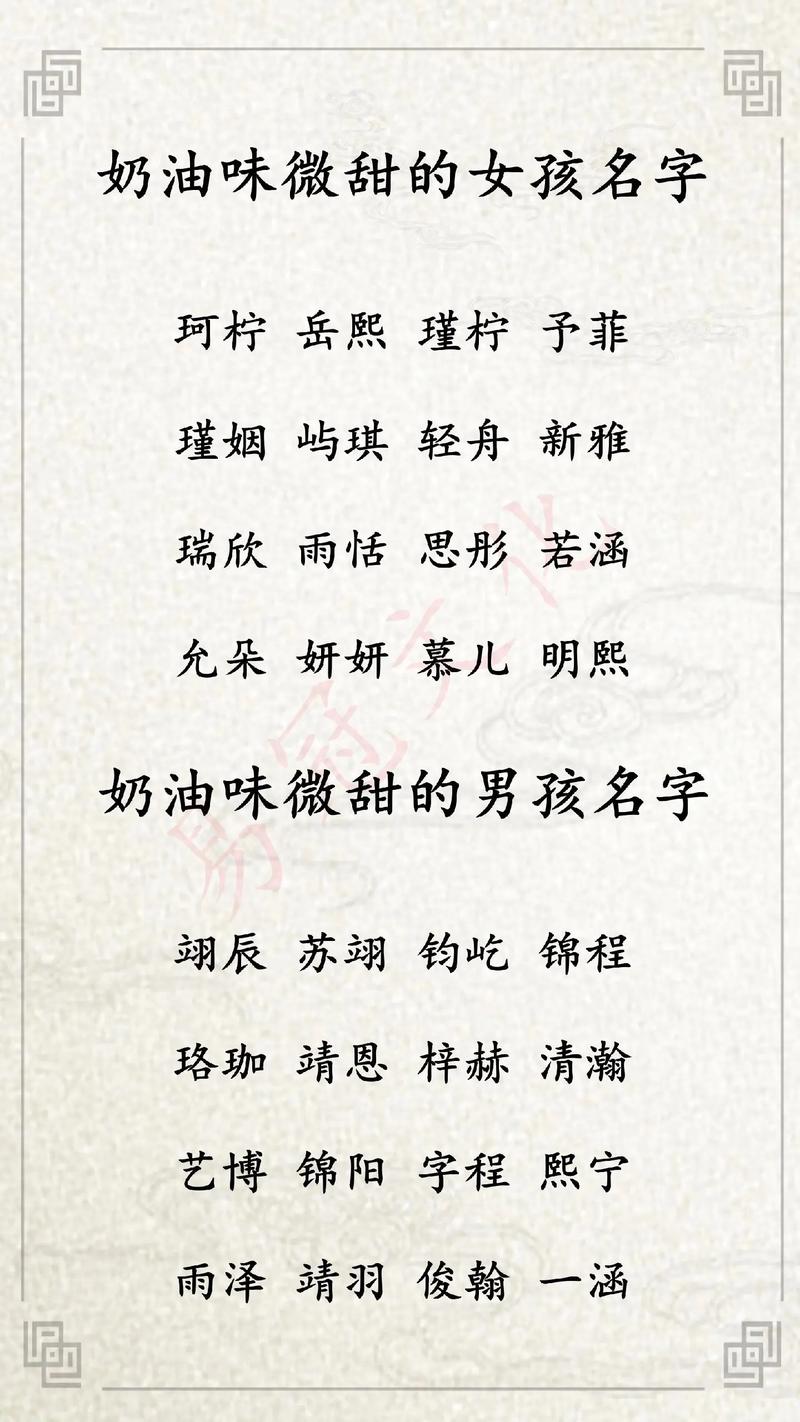 奶油味微甜的女孩名字
珂柠 岳熙 瑾柠 予菲
瑾姻 屿琪 轻舟 新雅
瑞欣 雨恬 思彤 若涵
允朵 妍妍 慕儿 明熙
奶油味微甜的男孩名字
翊辰 苏翊 钧屹 锦程
珞珈 靖恩 梓赫 清瀚
艺博 锦阳 字程 熙宁
雨泽 靖羽 俊翰 一涵
易冠文化